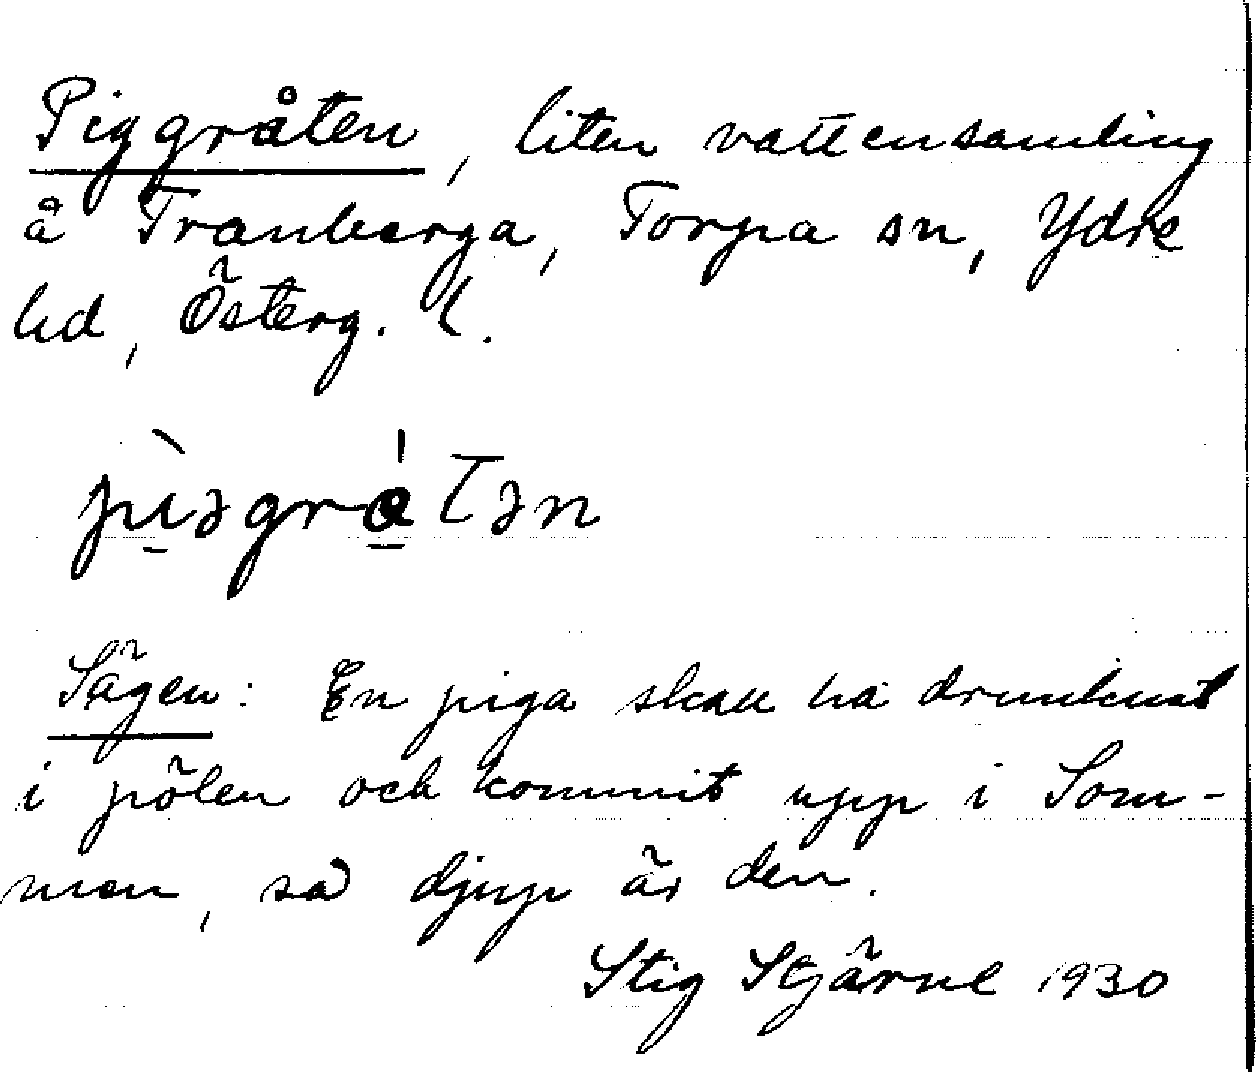 Piggråten, liten vattensamling
å Tranberga, Torpa sn, Ydre
hd, Österg. l.
pìəgrátən
Sägen: En piga skall ha drunknat
i pölen och kommit upp i Som-
men, så djup är den.
Stig Stjärne 1930